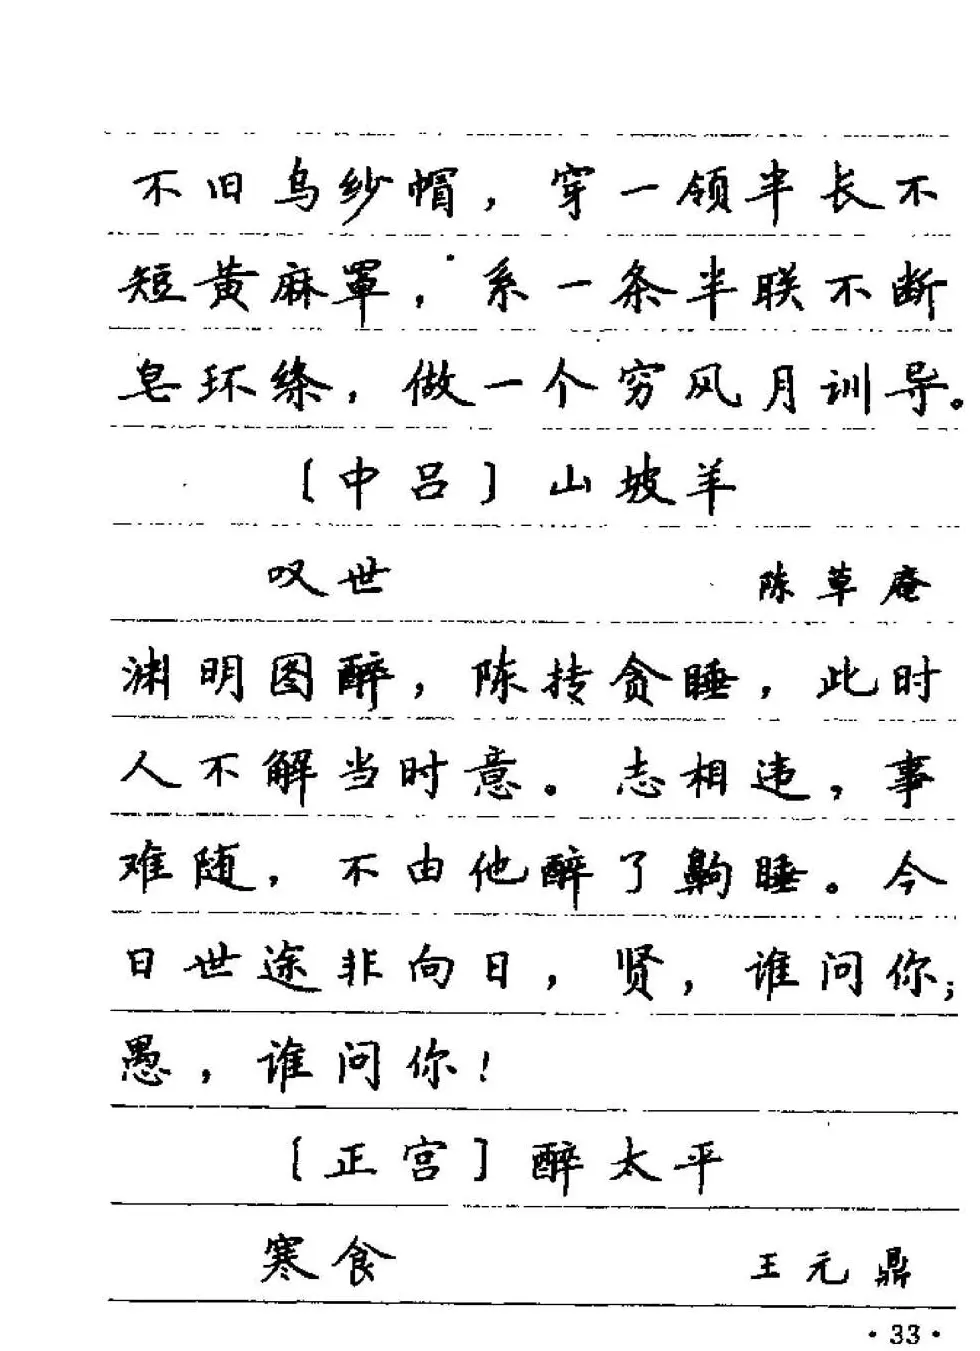 不旧乌纱帽，穿一领半长不
短黄麻罩，系一条半联不断
皂环绦，做一个穷风月训导。
〔中吕〕山坡羊
叹世 陈草庵
渊明图醉，陈抟贪睡，此时
人不解当时意。志相违，事
难随，不由他醉了齁睡。今
日世途非向日，贤，谁问你；
愚，谁问你！
〔正宫〕醉太平
寒食 王元鼎
·33·